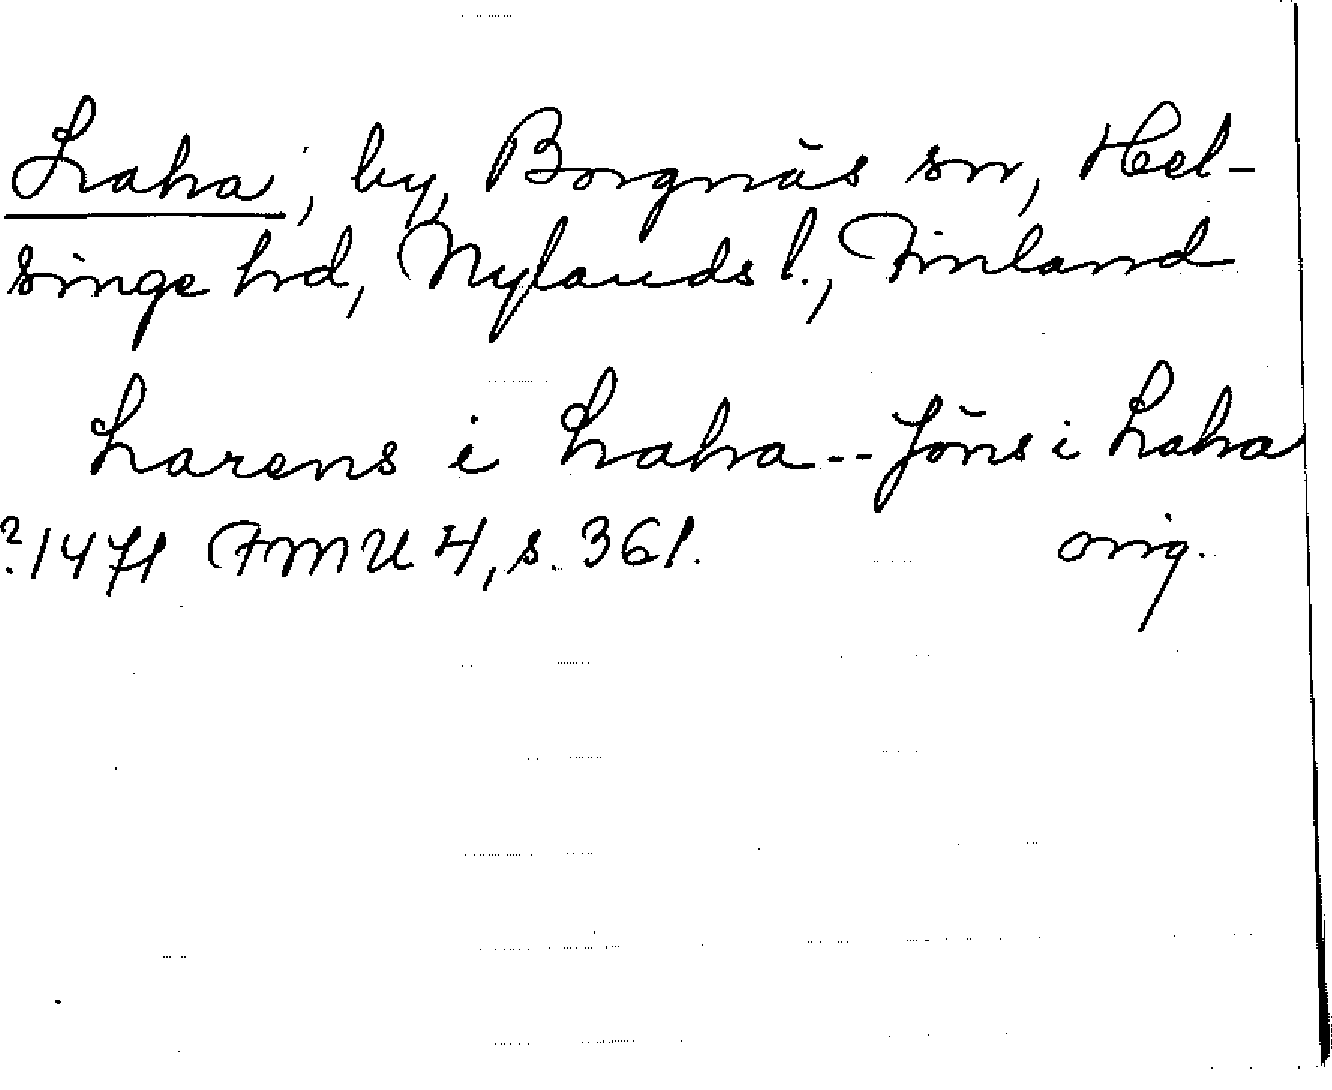 Laha, by, Borgnäs sn, Hel-
singe hd, Nylands l., Finland
Larens i Laha -- Jöns i Laha
? 1471 FMU 4, s. 361. orig.